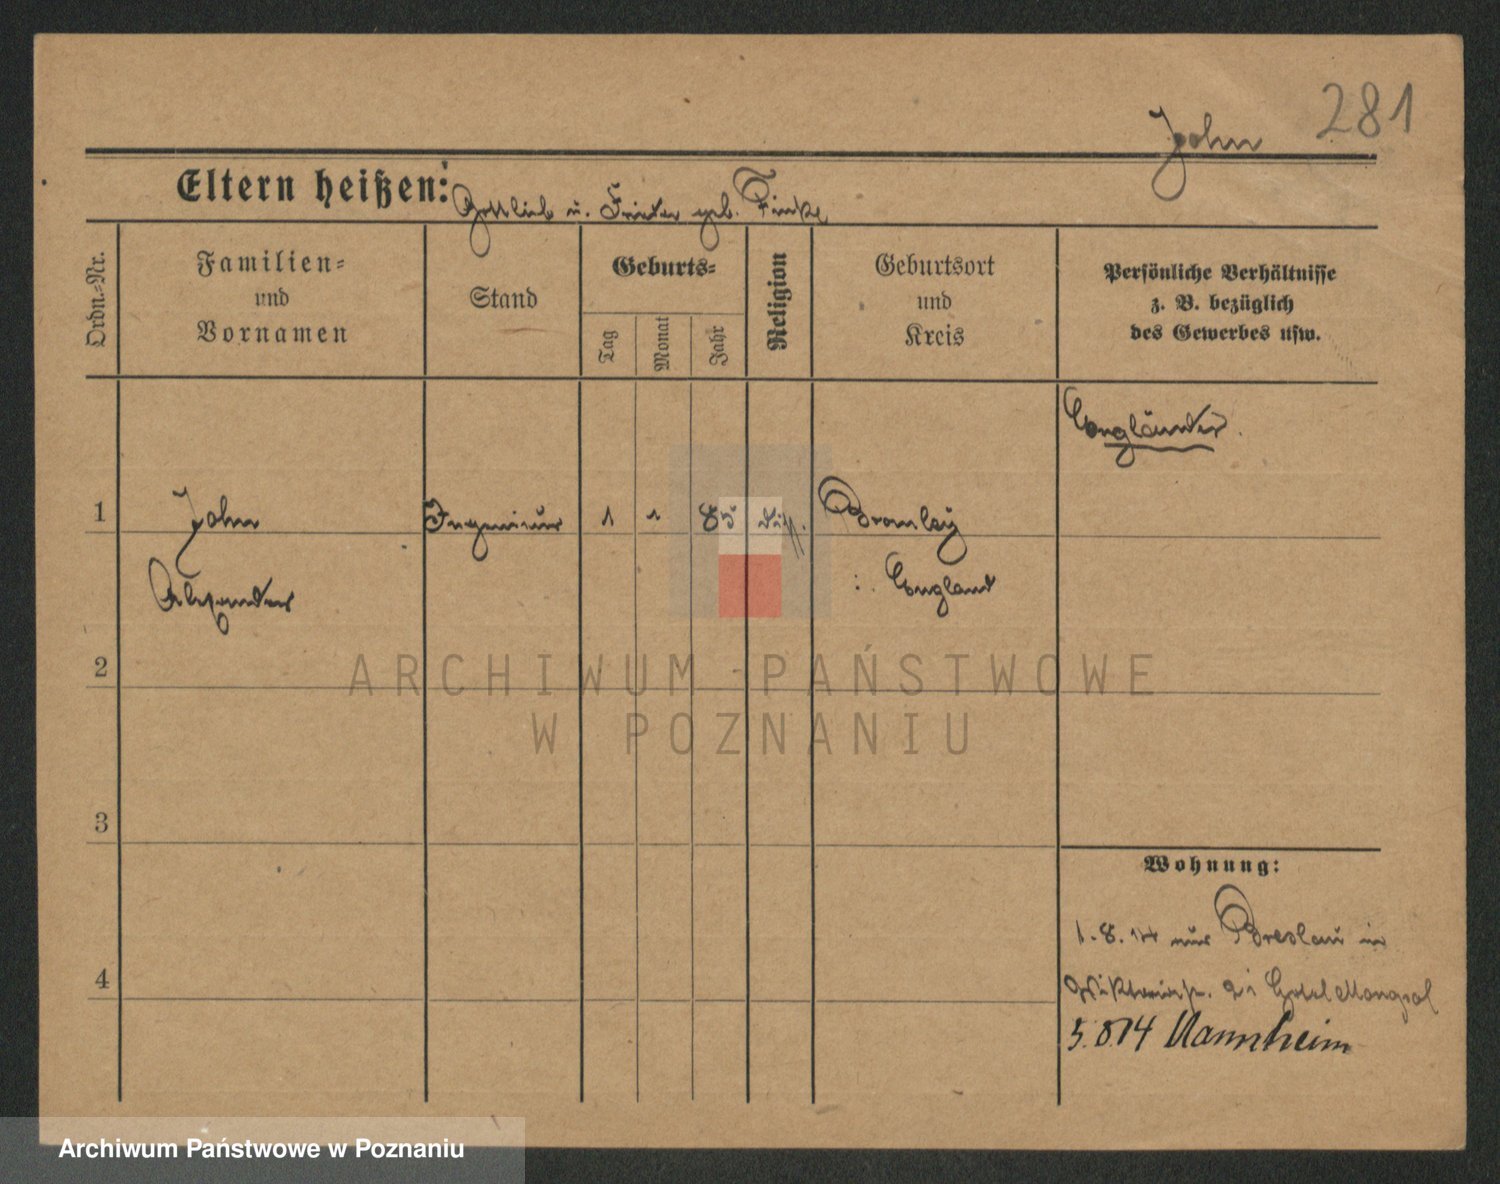 281
John
Eltern heißen:
Gottlieb u. geb. Finke
Ordn.-Nr.
Familien-
und
Vornamen
Stand
Geburts-
Tag
Monat
Jahr
Religion
Geburtsort
und
Kreis
Persönliche Verhältnisse
z. B. bezüglich
des Gewerbes usw.
Engländer.
1
John
Ingenieur
1
1
85
diss.
Bromley
Alexander
England
2
ARCHIWUM PAŃSTWOWE
W POZNANIU
3
Wohnung:
1.8.14 Breslau in
Viktoriastr. 21 Hotel
4
5.8.14 Mannheim
Archiwum Państwowe w Poznaniu